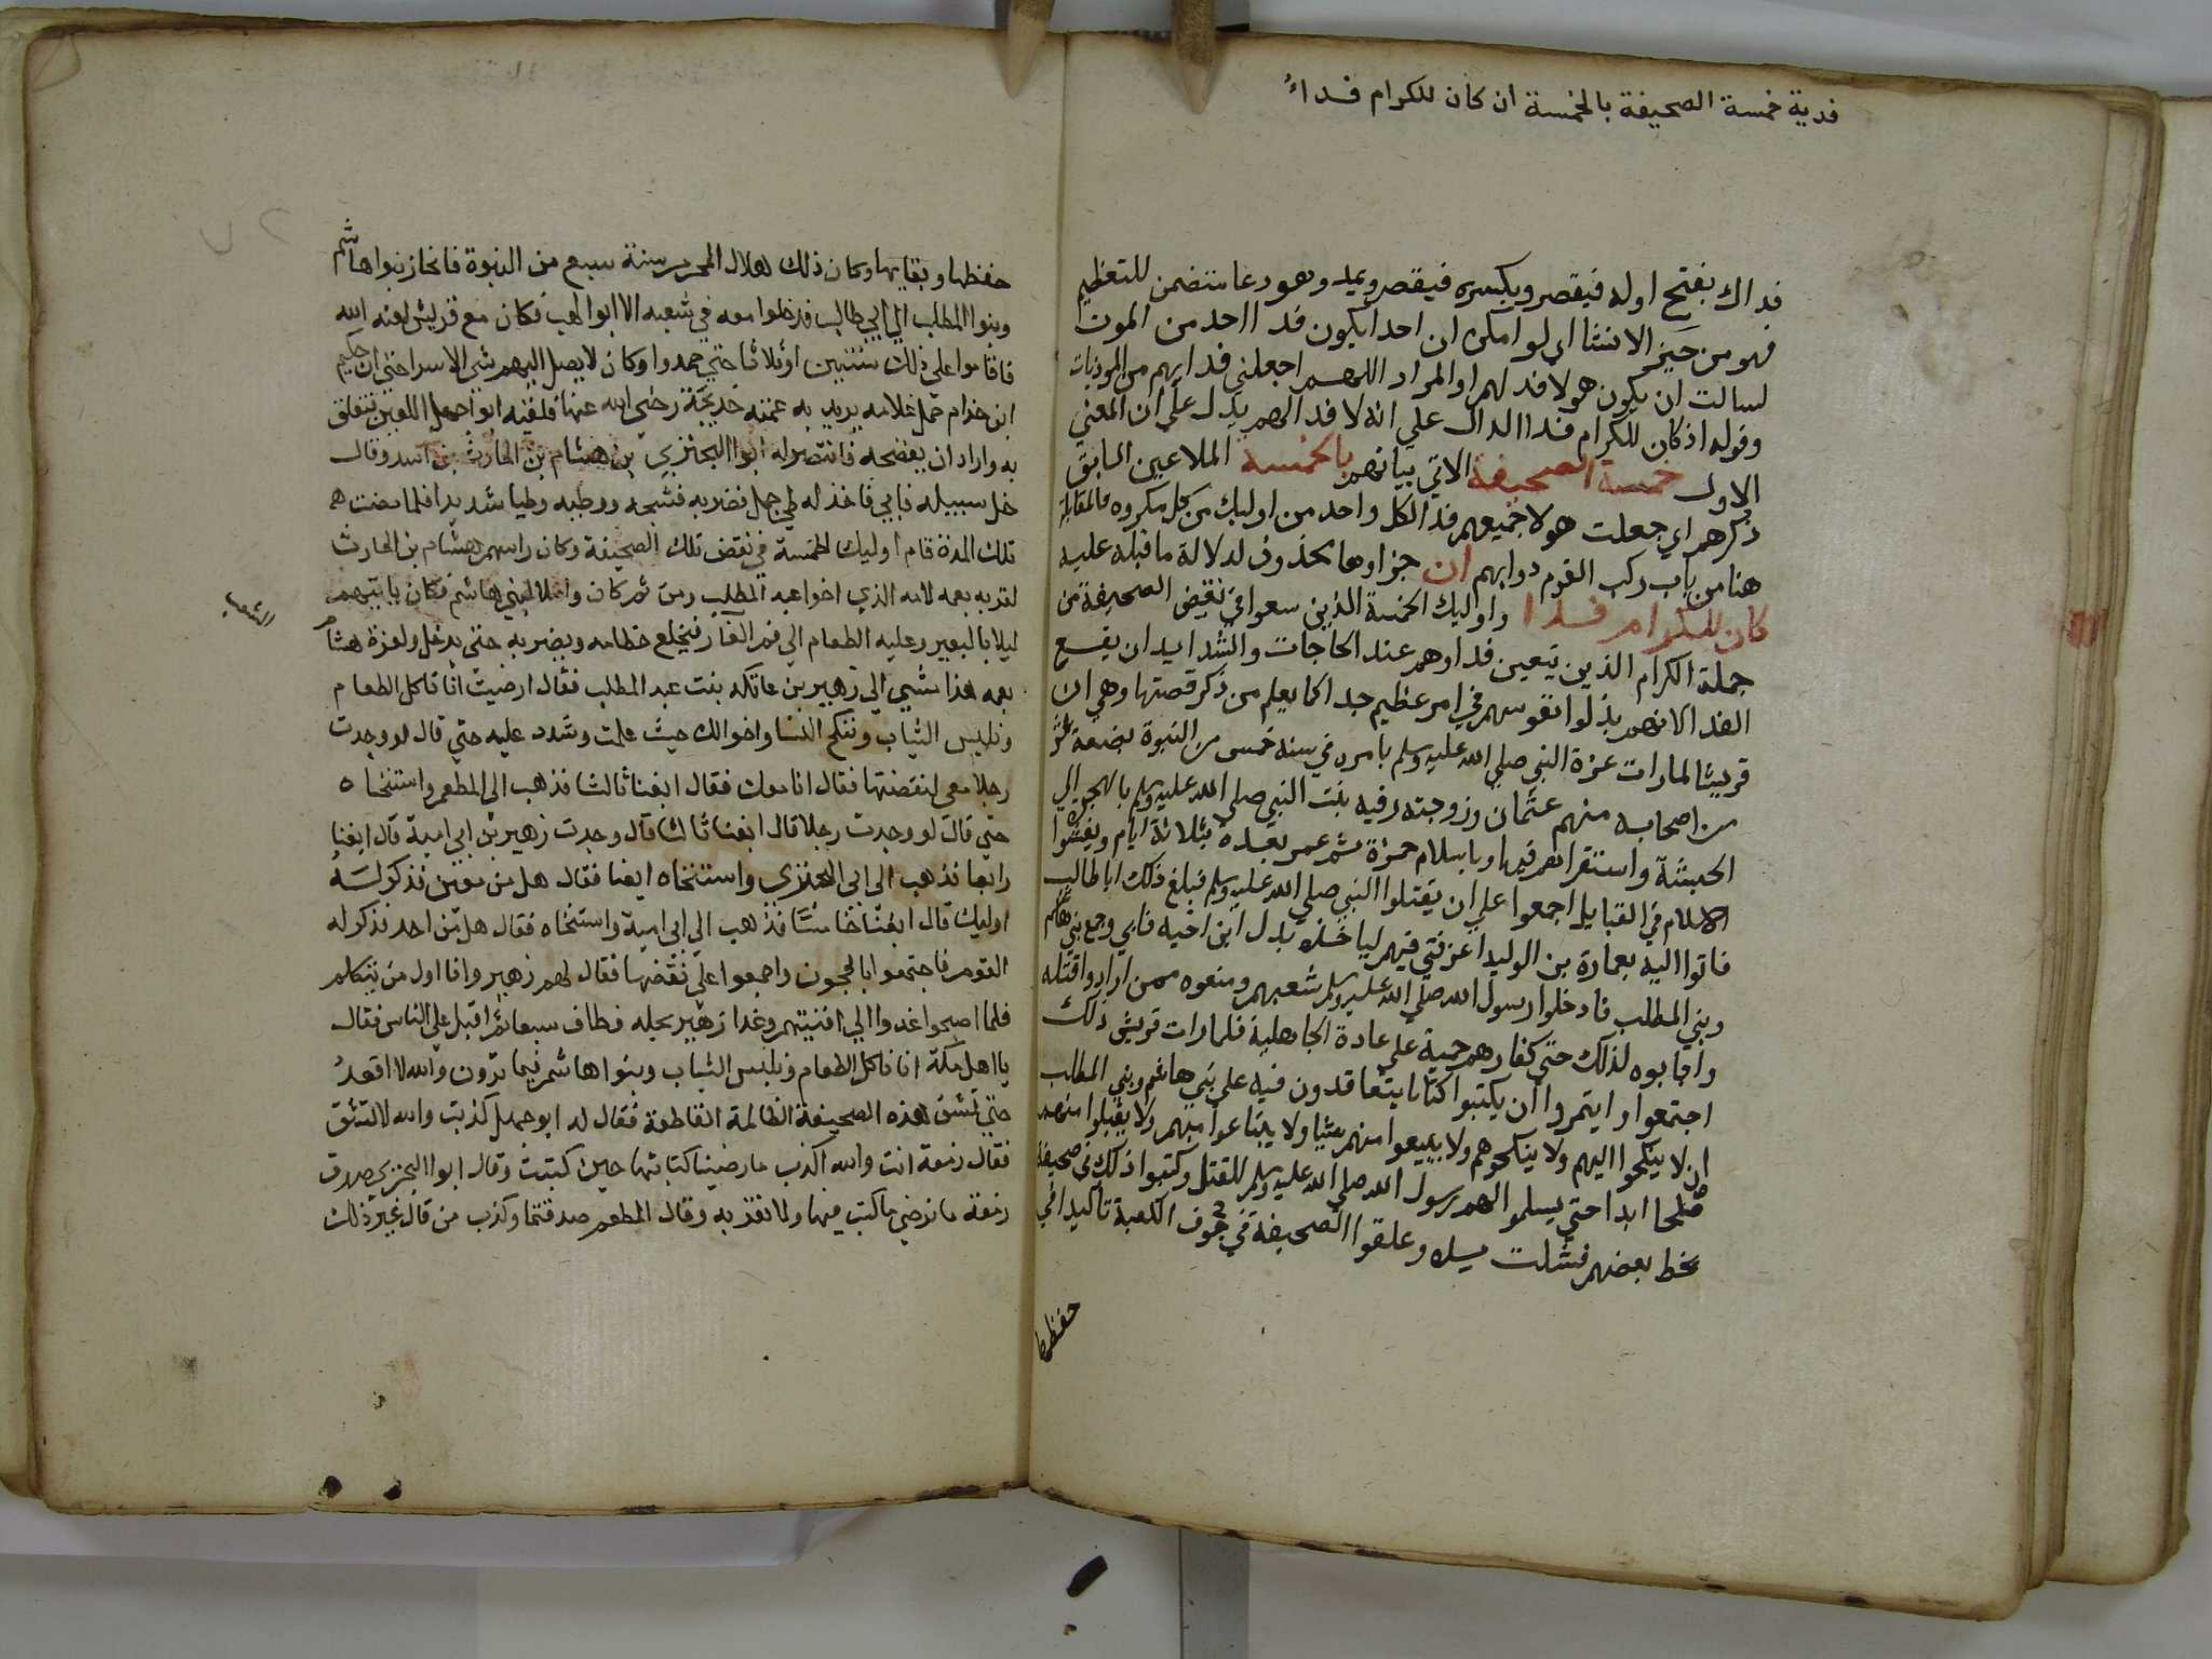 فدية خمسة الصحيفة بالخمسة ان كان للكرام فداءُ
فداك بفتح اوله فيقصر وبكسره فيقصر ويمد وهو دعا متضمن للتعظيم
فهو من حيز الانشا اي لو امكن ان احدا يكون فدا احد من الموت
لسالت ان يكون هولا فد لهم او المراد اللهم اجعلني فدايهم من الموذيات
وقوله اذ كان للكرام فدا الدال علي انه لا فدا لهم يدل علي ان المعني
الاول خمسة الصحيفة الاتي بيانهم بالخمسة الملاعين السابق
ذكرهم اي جعلت هولا جميعهم فدا لكل واحد من اوليك من كل مكروه فالمقابلة
هنا من باب ركب القوم دوابهم ان جزاوها محذوف لدلالة ما قبله عليه
كان للكرام فدا واوليك الخمسة الذين سعوا في نقيض الصحيفة من
جملة الكرام الذين يتعين فداوهم عند الحاجات والشدايد ان يقع
الفدا لانهم بذلوا نفوسهم في امر عظيم جدا كما يعلم من ذكر قصتها وهي ان
قريشا لما رات عزة النبي صلي الله عليه وسلم بامره في سنه خمس من النبوة بضعة عشر
من اصحابه منهم عثمان وزوجته رقيه بنت النبي صلي الله عليه وسلم بالهجرة الي
الحبشة واستقرارهم فيها وباسلام حمزة ثم عمر بعده بثلاثة ايام وبفشوا
الاسلام في القبايل اجمعوا علي ان يقتلوا النبي صلي الله عليه وسلم فبلغ ذلك ابا طالب
فاتوا اليه بعمارة بن الوليد اعز فتي فيهم لياخذه بدل ابن اخيه فابي وجمع بني هاشم
وبني المطلب فادخلوا رسول الله صلي الله عليه وسلم شعبهم ومنعوه ممن ارادوا قتله
واجابوه لذلك حتي كفارهم حمية علي عادة الجاهلية فلما رات قريش ذلك
اجتمعوا وايتمروا ان يكتبوا كتابا يتعاقدون فيه علي بني هاشم وبني المطلب
ان لا ينكحوا اليهم ولا ينكحوهم ولا يبيعوا منهم شيا ولا يبتاعوا منهم ولا يقبلوا منهم
صلحا ابدا حتي يسلموا الهم رسول الله صلي الله عليه وسلم للقتل وكتبوا ذلك في صحيفة
بخط بعضهم فشلت يده وعلقوا الصحيفة في جوف الكعبة تاكيدا في
حفظها
حفظها وبقايها وكان ذلك هلال المحرم سنة سبع من النبوة فانحاز بنوا هاشم
وبنوا المطلب الي ابي طالب فدخلوا معه في شعبه الا ابوا لهب فكان مع قريش لعنه الله
فاقاموا علي ذلك سنتين او ثلاثا حتي جهدوا وكان لا يصل اليهم شي الا سرا حتي ان حكيم
ابن حزام حمل غلامه يريد به عمته خديجة رضي الله عنها فلقيه ابوا جهل اللعين فتعلق
به واراد ان يفضحه فانتصر له ابوا البختري بن هشام بن الحارث بن اسد وقال
خل سبيله فابي فاخذ له لحي جمل فضربه فشجه ووطيه وطيا شديدا فلما مضت
تلك المدة قام اوليك الخمسة في نقض تلك الصحيفة وكان راسهم هشام بن الحارث
لقربه بعمه لامه الذي اخوا عبد المطلب ومن ثم كان واصلا لبني هاشم فكان ياتيهم
الشعب
ليلا بالبعير وعليه الطعام الي فم الغار فيخلع خطامه ويضربه حتي يدخل ولعزة هشام
بعمه هذا مشي الي زهير بن عاتكة بنت عبد المطلب فقال ارضيت انا ناكل الطعام
ونلبس الثياب وننكح النسا واخوالك حيث علمت وشدد عليه حتي قال لو وجدت
رجلا معي لنقضتها فقال انا معك فقال ابغنا ثالثا فذهب الي المطعم واستنخاه
حتي قال لو وجدت رجلا قال ابغنا ثالثا قال وجدت زهير بن ابي امية قال ابغنا
رابعا فذهب الي ابي البختري واستنخاه ايضا فقال هل من معين فذكر لسه
اوليك قال ابغنا خامسا فذهب الي ابي امية واستنخاه فقال هل من احد فذكر له
القوم فاجتمعوا بالحجون واجمعوا علي نقضها فقال لهم زهير وانا اول من يتكلم
فلما اصبحوا غدوا الي انديتهم وغدا زهير بحله فطاف سبعا ثم اقبل علي الناس فقال
يا اهل مكة انا ناكل الطعام ونلبس الثياب وبنوا هاشم فيما ترون والله لا اقعد
حتي تشق هذه الصحيفة الظالمة القاطعة فقال له ابو جهل كذبت والله لا تشق
فقال زمعة انت والله اكذب ما رضينا كتابتها حين كتبت وقال ابوا البختري صدق
زمعة ما نرضي ما كتب فيها ولا نقر به وقال المطعم صدقتما وكذب من قال غير ذلك